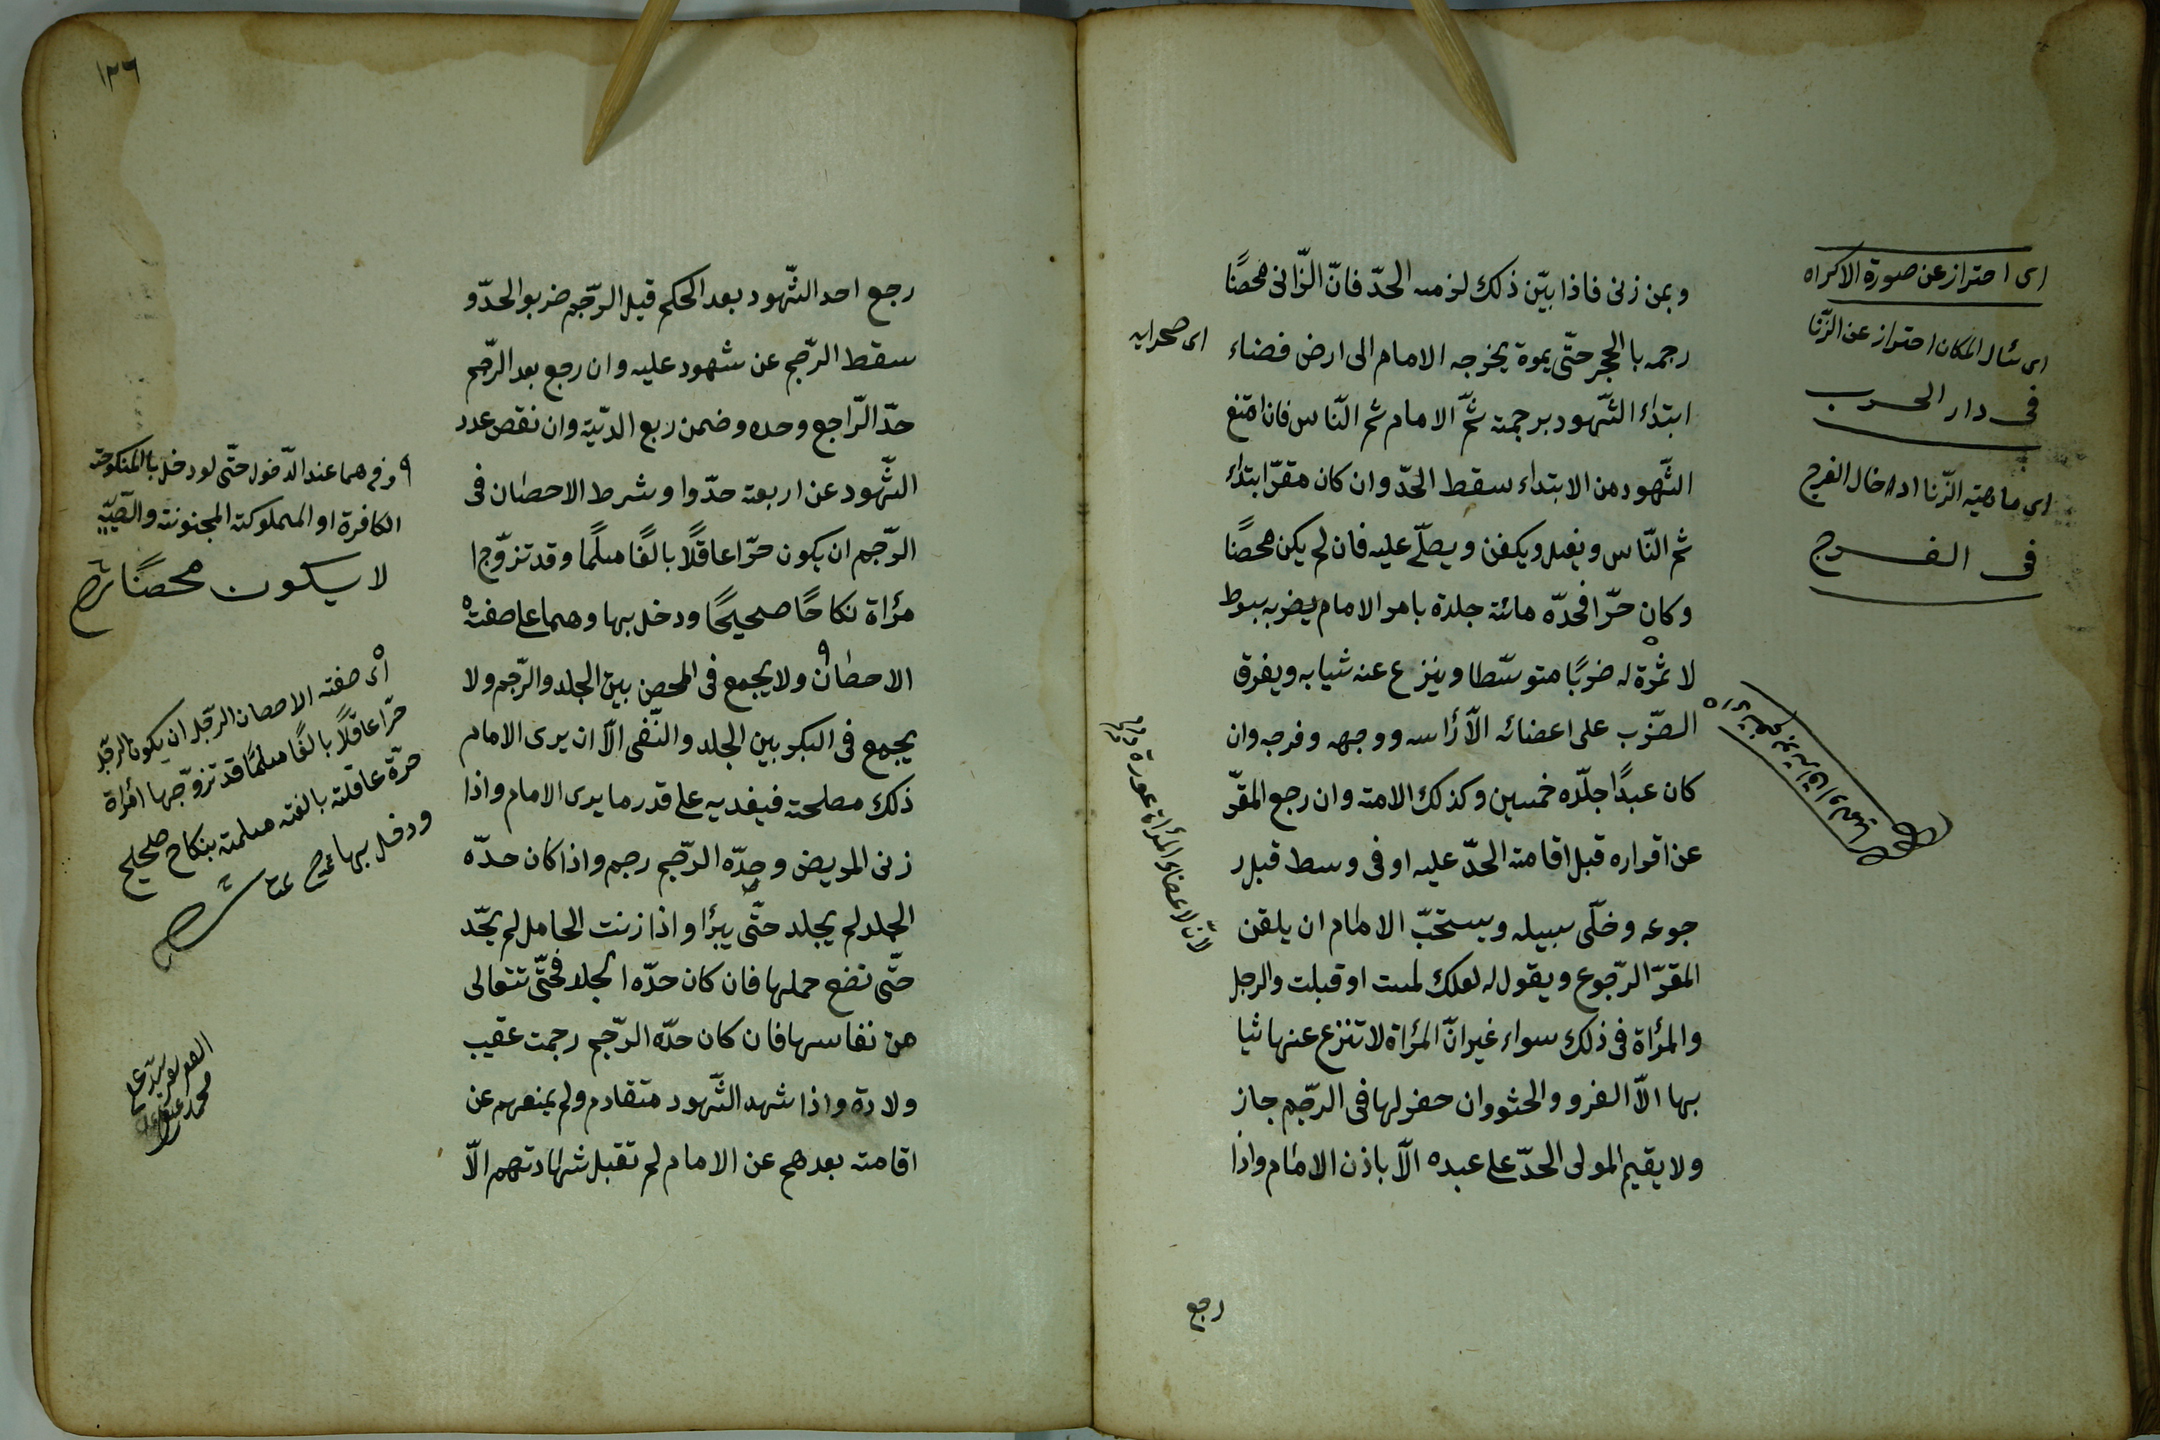 وبمن زنى فاذا بيّن ذلك لزمه الحدّ فانّ الزّانى محصنًا
رجمه بالحجر حتّى يموة يخرجه الامام الى ارض فضاء
ابتداء الشّهود برجمته ثمّ الامام ثم النّاس فان امتنع
الشّهود من الابتداء سقط الحدّ وان كان مقرّا ابتداء
ثم النّاس ويغسل ويكفن ويصلّى عليه فان لم يكن محصنًا
وكان حرّا فحدّه مائة جلدة بامر الامام يضربه بسوط
لا ثمرة له ضربًا متوسّطا وينزع عنه ثيابه ويفرق
الضّرب على اعضائه الّا رأسه ووجهه وفرجه وان
كان عبدًا جلّده خمسين وكذلك الامة وان رجع المقرّ
عن اقراره قبل اقامة الحدّ عليه او فى وسط قبل ر
جوعه وخلّى سبيله ويستحبّ الامام ان يلقن
المقرّ الرّجوع ويقول له لعلك لمست او قبلت والرجل
والمرأة فى ذلك سواء غير انّ المرأة لا تنزع عنها ثيا
بها الّا الفرو والحشو وان حفر لها فى الرّجم جاز
ولا يقيم المولى الحدّ على عبده الّا باذن الامام واذا
رجع
اى احتراز عن صورة الاكراه
اى سئال المكان احتراز عن الزّنا
فى دار الحرب
اى ماهية الزّنا ادخال الفرج
فى الفرج
اى صحرايه
لانّ اعضاء المرأة عورة
١٢٦
رجع احد الشّهود بعد الحكم قبل الرّجم ضربو الحدّ و
سقط الرّجم عن شهود عليه وان رجع بعد الرّجم
حدّ الرّاجع وحده وضمن ربع الدّية وان نقص عدد
الشّهود عن اربعة حدّوا وشرط الاحصان فى
الرّجم ان يكون حرّا عاقلًا بالغًا مسلمًا وقد تزوّج ا
مرأة نكاحًا صحيحًا ودخل بها وهما على صفة
الاحصان ولا يجمع فى المحصن بين الجلد والرّجم ولا
يجمع فى البكر بين الجلد والنّفى الّا ان يرى الامام
ذلك مصلحة فيفديه على قدر ما يرى الامام واذا
زنى المريض وحدّه الرّجم رجم واذا كان حدّه
الجلد لم يجلد حتّى يبرأ واذا زنت الحامل لم يحّد
حتّى تضع حملها فان كان حدّه الجلد فحتّى تتعالى
من نفاسها فان كان حدّه الرّجم رجمت عقيب
ولادة واذا شهد الشّهود متقادم ولم يمنعهم عن
اقامته بعدهم عن الامام لم تقبل شهادتهم الّا
عند الدّخول حتّى لو دخل بالمنكوحة
الكافرة او المملوكة المجنونة والصّبيّه
لا يكون محصنًا
اى صفة الاحصان الرّجل ان يكون الرّجل
حرّا عاقلًا بالغًا مسلمًا قد تزوّجها امرأة
حرّة عاقلة بالغة مسلمة بنكاح صحيح
ودخل بها